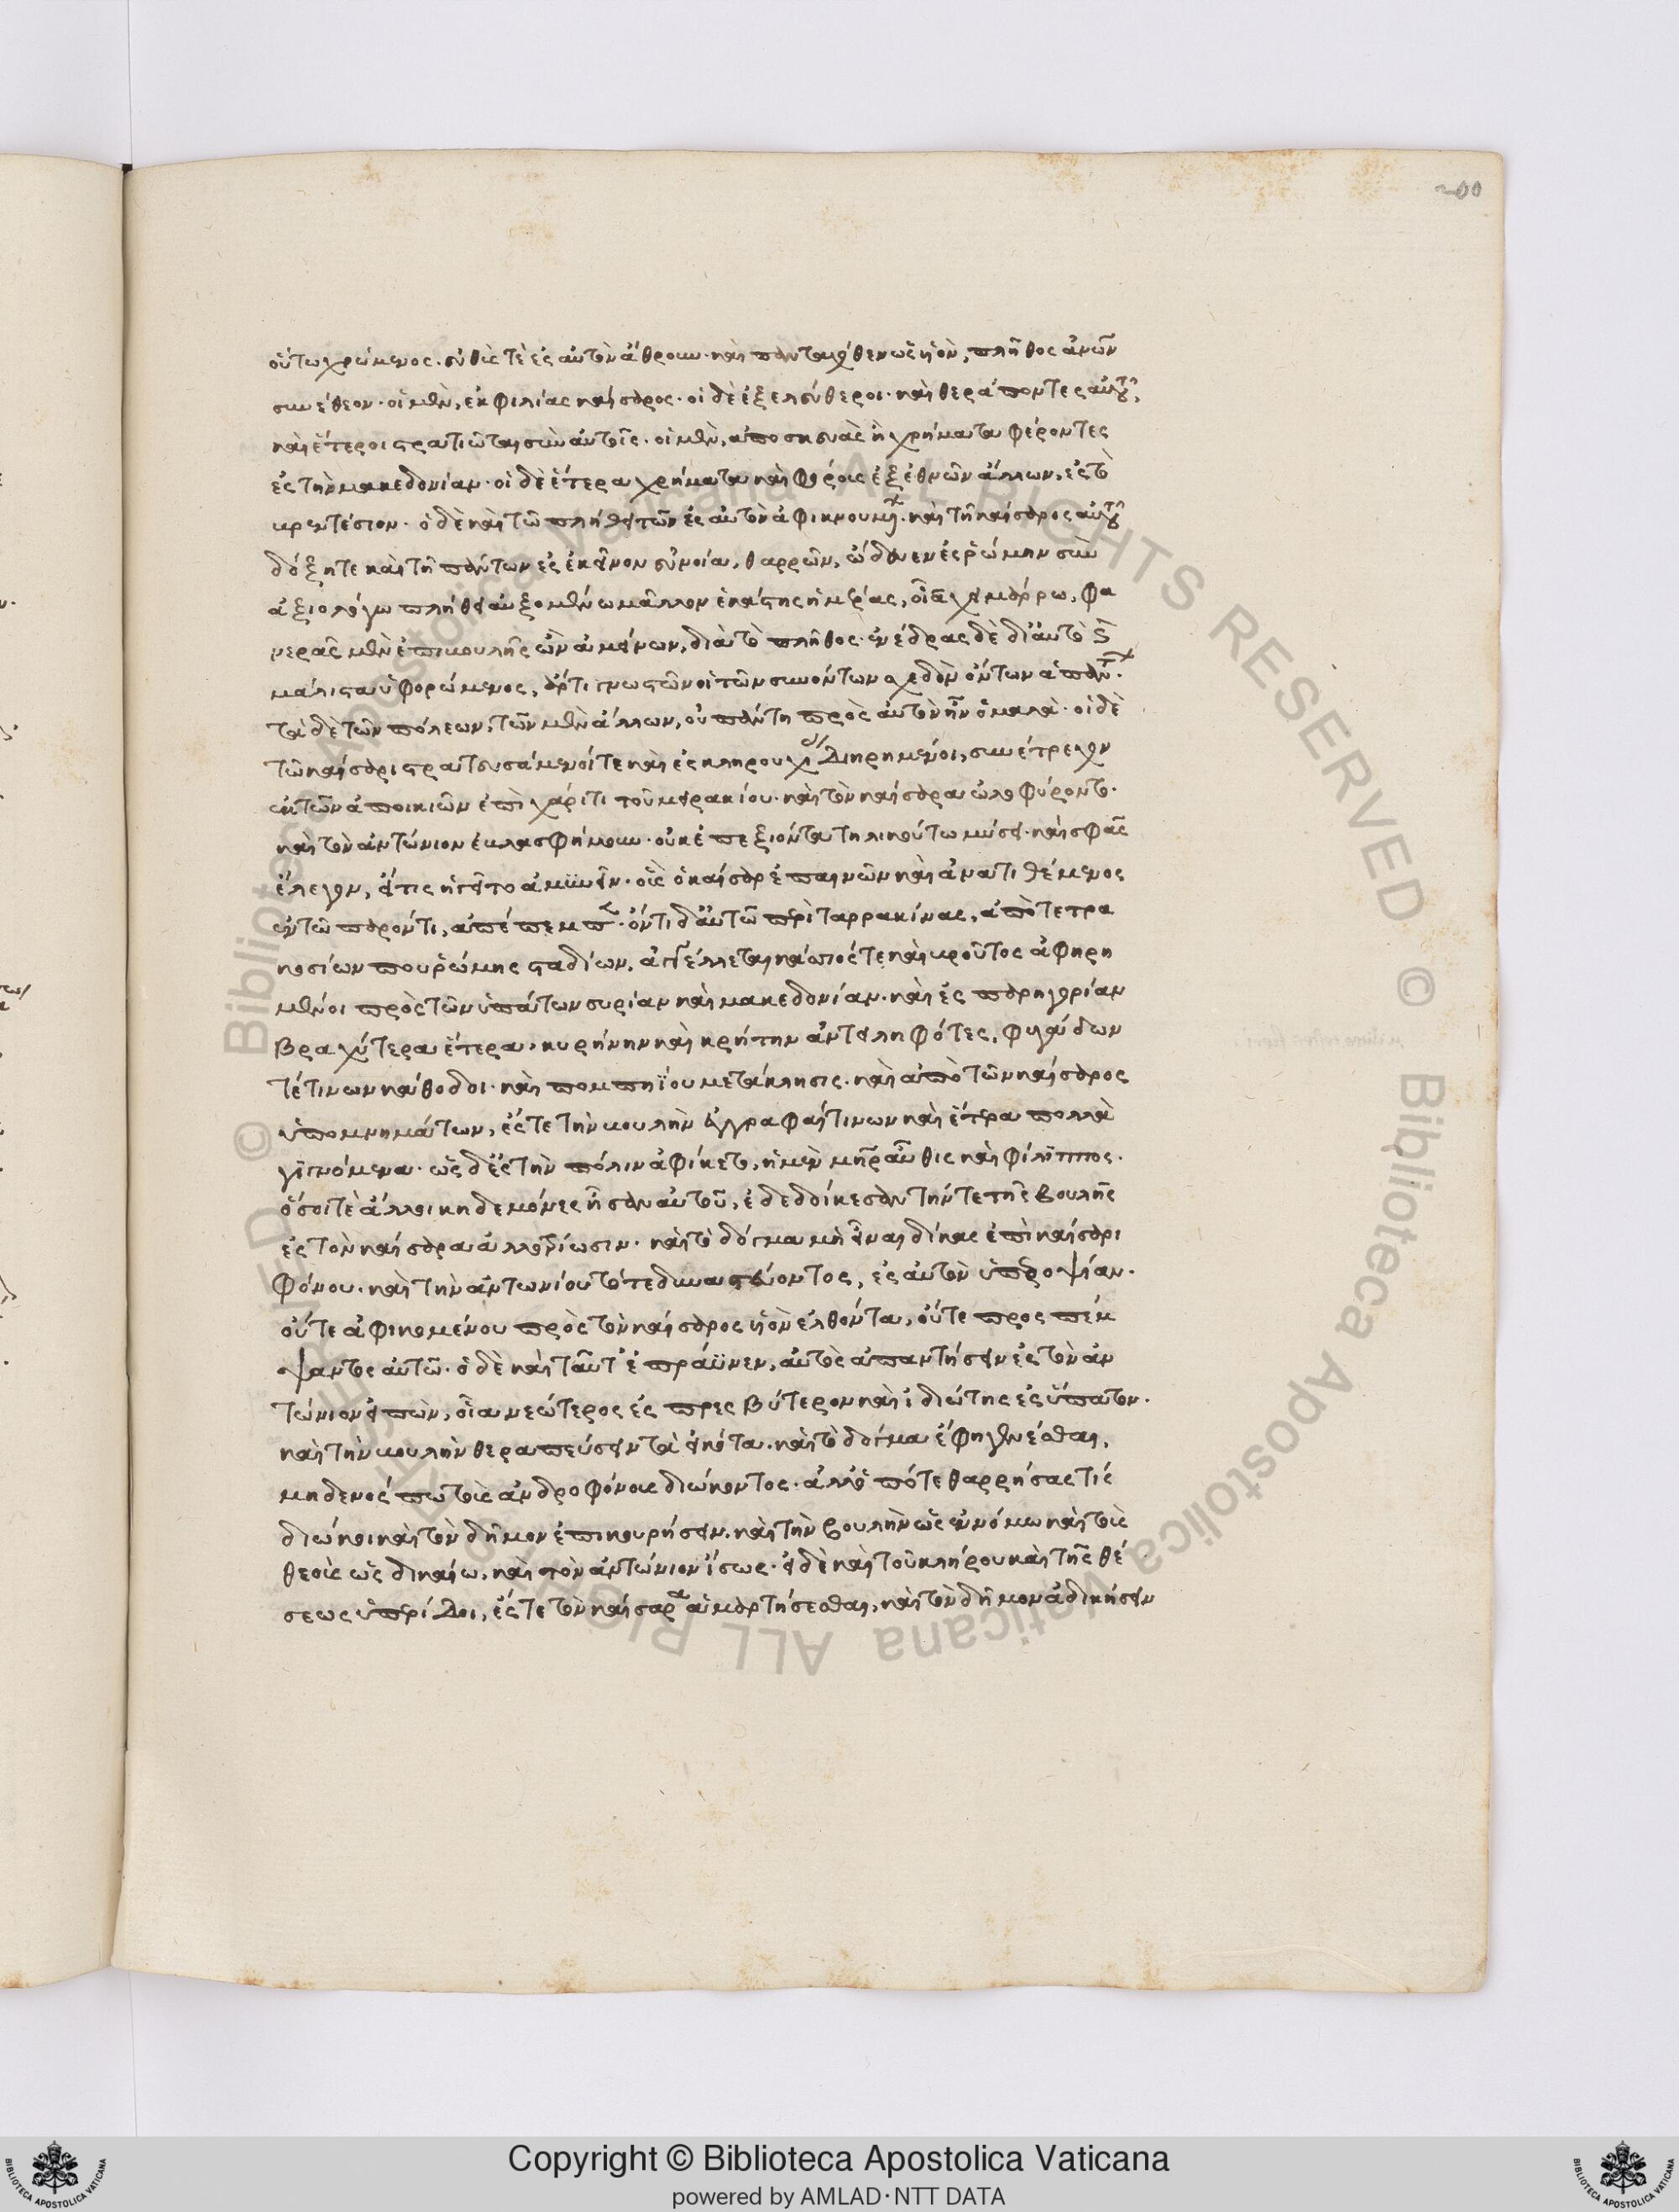 200
οὕτω χρώμενος. εὐθύς τε ἐς αὐτὸν ἄθρουν. καὶ πανταχόθεν ὡς υἱὸν, πλῆθος ἀνῶν
συνέθεον. οἱ μὲν, ἐκ φιλίας καίσαρος. οἱ δὲ ἐξελεύθεροι. καὶ θεράποντες αὐτοῦ,
καὶ ἕτεροι στρατιῶται σὺν αὐτοῖς. οἱ μὲν, ἀποσκευὰς ἢ χρήματα φέροντες
ἐς τὴν μακεδονίαν. οἱ δὲ ἕτερα χρήματα καὶ φόρους ἐξ ἐθνῶν ἄλλων, ἐς τὸ
βρεντέσιον. ὁ δὲ καὶ τῶ πλήθει τῶν ἐς αὐτὸν ἀφικνουμένων. καὶ τῆ καίσαρος αὐτοῦ
δόξη τε καὶ τῆ πάντων ἐς ἐκεῖνον εὐνοία, θαρρῶν, ὥδευεν ἐς ῥώμην σὺν
ἀξιολόγω πλήθει αὐξομένω μᾶλλον ἑκάστης ἡμέρας, οἷα χειμάρρω, φα
νερᾶς μὲν ἐπιβουλῆς ὢν ἀμείνων, διὰ τὸ πλῆθος. ἐνέδρας δὲ δι' αὐτὸ
μάλιστα ὑφορώμενος, ἀρτιγνώστων οἱ τῶν συνόντων σχεδὸν ὄντων ἁπάντων.
τὰ δὲ τῶν πόλεων, τῶν μὲν ἄλλων, οὐ πάντη πρὸς αὐτὸν ἦν ὁμαλά. οἱ δὲ
τῶ καίσαρι στρατευσάμενοί τε καὶ ἐς κληρουχίας διηρημένοι, συνέτρεχον
ἐκ τῶν ἀποικιῶν ἐπὶ χάριτι τοῦ μειρακίου. καὶ τὸν καίσαρα ὠλοφύροντο.
καὶ τὸν ἀντώνιον ἐβλασφήμουν. οὐκ ἐπεξιόντα τηλικούτω μύσει. καὶ σφᾶς
ἔλεγον, εἴ τις ἡγοῖτο ἀμϋνεῖν. οὓς ὁ καίσαρ ἐπαινῶν καὶ ἀνατιθέμενος
ἐν τῶ παρόντι, ἀπέπεμπε. ὄντι δ' αὐτῶ περὶ ταρρακίνας, ἀπὸ τετρα
κοσίων που ῥώμης σταδίων, ἀγγέλλεται κάσσιός τε καὶ βροῦτος ἀφηρη
μένοι πρὸς τῶν ὑπάτων συρίαν καὶ μακεδονίαν. καὶ ἐς παρηγορίαν
βραχύτερα ἕτερα, κυρήνην καὶ κρήτην ἀντειληφότες, φυγάδων
τέ τινων κάθοδοι. καὶ πομπηΐου μετάκλησις. καὶ ἀπὸ τῶν καίσαρος
ὑπομνημάτων, ἔς τε τὴν βουλὴν ἐγγραφαί τινων καὶ ἕτερα πολλὰ
γϊγνόμενα. ὡς δ' ἐς τὴν πόλιν ἀφίκετο, ἡ μὲν μήτηρ αὖθις καὶ φίλϊππος.
ὅσοι τε ἄλλοι κηδεμόνες ἦσαν αὐτοῦ, ἐδεδοίκεσαν τήν τε τῆς βουλῆς
ἐς τὸν καίσαρα ἀλλοτρίωσιν. καὶ τὸ δόγμα μὴ εἶναι δίκας ἐπὶ καίσαρι
φόνου. καὶ τὴν ἀντωνίου τότε δυναστεύοντος, ἐς αὐτὸν ὑπεροψίαν.
οὔτε ἀφικομένου πρὸς τὸν καίσαρος υἱὸν ἐλθόντα, οὔτε προσπέμ
ψαντος αὐτῶ. ὁ δὲ καὶ ταῦτ' ἐπράϋνεν, αὐτὸς ἀπαντήσειν ἐς τὸν ἀν
τώνιον εἰπὼν, οἷα νεώτερος ἐς πρεσβύτερον καὶ ἰδιώτης ἐς ὕπατον.
καὶ τὴν βουλὴν θεραπεύσειν τὰ εἰκότα. καὶ τὸ δόγμα ἔφη γενέσθαι,
μηδενός πω τοὺς ἀνδροφόνους διώκοντος. ἀλλ' ὁπότε θαρρήσας τίς
διώκοι καὶ τὸν δῆμον ἐπικουρήσειν. καὶ τὴν βουλὴν ὡς ἐννόμω καὶ τοὺς
θεοὺς ὡς δικαίω, καὶ τὸν ἀντώνιον ἴσως. εἰ δὲ καὶ τοῦ κλήρου καὶ τῆς θέ
σεως ὑπερίδοι, ἔς τε τὸν καίσαρα ἁμαρτήσεσθαι, καὶ τὸν δῆμον ἀδικήσειν
© Biblioteca Apostolica Vaticana ALL RIGHTS RESERVED © Biblioteca Apostolica Vaticana ALL RIGHTS RESERVED
Copyright © Biblioteca Apostolica Vaticana
powered by AMLAD·NTT DATA
BIBLIOTECA APOSTOLICA VATICANA
BIBLIOTECA APOSTOLICA VATICANA